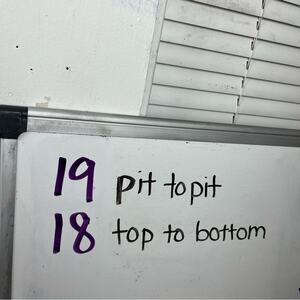 19 pit to pit
18 top to bottom